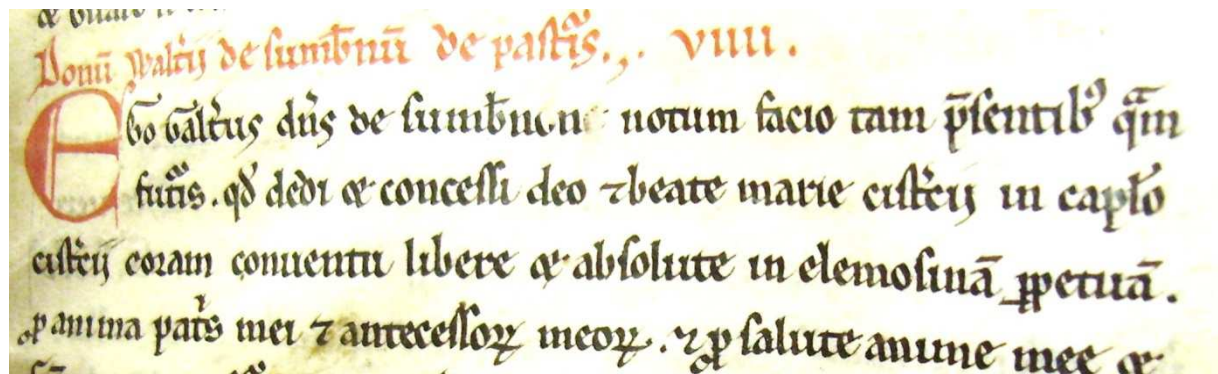 Donū Walt̾ij de sumb̄nū de pastᵃis. VIIII.
Ego Galt̾ius dn̄s de sumb̄nun notum facio tam p̄sentibꝰ qᵃm
futᵃis. qd̄ dedi ⁊ concessi deo ⁊ beate marie cist̾cij in capłо
cist̾cij coram conuentu libere ⁊ absolute in elemosinā ꝑpetuā.
ꝓ anima patⁱs mei ⁊ antecessoꝝ meoꝝ. ⁊ ꝓ salute anime mee ⁊